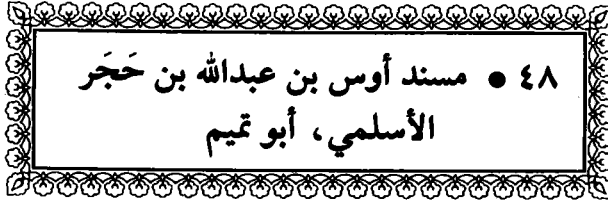 ٤٨ • مسند أوس بن عبدالله بن حَجَر
الأسلمي، أبو تميم